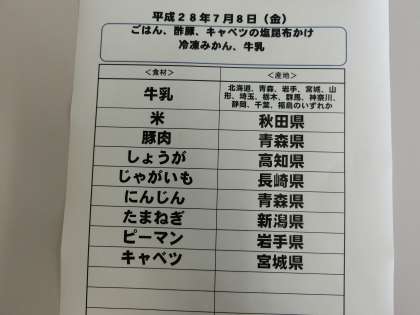 平成28年7月8日（金）
ごはん、酢豚、キャベツの塩昆布かけ
冷凍みかん、牛乳
＜食材＞ ＜産地＞
牛乳 北海道、青森、岩手、宮城、山
形、埼玉、栃木、群馬、神奈川、
静岡、千葉、福島のいずれか
米 秋田県
豚肉 青森県
しょうが 高知県
じゃがいも 長崎県
にんじん 青森県
たまねぎ 新潟県
ピーマン 岩手県
キャベツ 宮城県